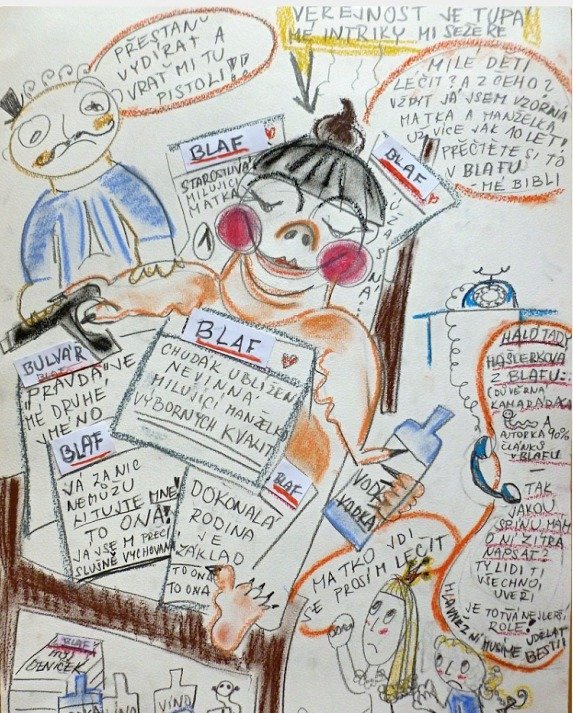 VEŘEJNOST JE TUPÁ
MÉ INTRIKY MI SEŽERE
PŘESTAŇ
VYDÍRAT A
VRAŤ MI TU
PISTOLI!!
MILÉ DĚTI
LÉČIT? A Z ČEHO?
VŽDYŤ JÁ JSEM VZORNÁ
MATKA A MANŽELKA
UŽ VÍCE JAK 10 LET!
PŘEČTĚTE SI TO
V BLAFU
MÉ BIBLI
BLAF
STAROSTLIVÁ
MILUJÍCÍ
MATKA
BLAF
ÚŽASNÁ!
BLAF
CHUDÁK UBLÍŽENÁ
NEVINNÁ
MILUJÍCÍ MANŽELKA
VÝBORNÝCH KVALIT
BULVÁR
BLAF
"PRAVDA" JE
MÉ DRUHÉ
JMÉNO
BLAF
JÁ ZA NIC
NEMŮŽU
LITUJTE MNE!
TO ONA!
JÁ JSEM PŘECI
SLUŠNĚ VYCHOVANÁ
BLAF
DOKONALÁ
RODINA
JE
ZÁKLAD
TO ONA
TO ONA
VODKA
MATKO JDI
SE PROSÍM LÉČIT
HALÓ TADY
HAŠLERKOVÁ
Z BLAFU
(DŮVĚRNÁ
KAMARÁDKA
A
AUTORKA 90%
ČLÁNKŮ
V BLAFU
TAK
JAKOU
ŠPÍNU MÁM
O NÍ ZÍTRA
NAPSAT?
TY LIDI TI
VŠECHNO
UVĚŘÍ
JE TO TVÁ NEJLEPŠÍ
ROLE!
HLAVNĚ Z NÍ MUSÍME UDĚLAT
BESTII!
BLAF
MŮJ
DENÍČEK
VÍNO